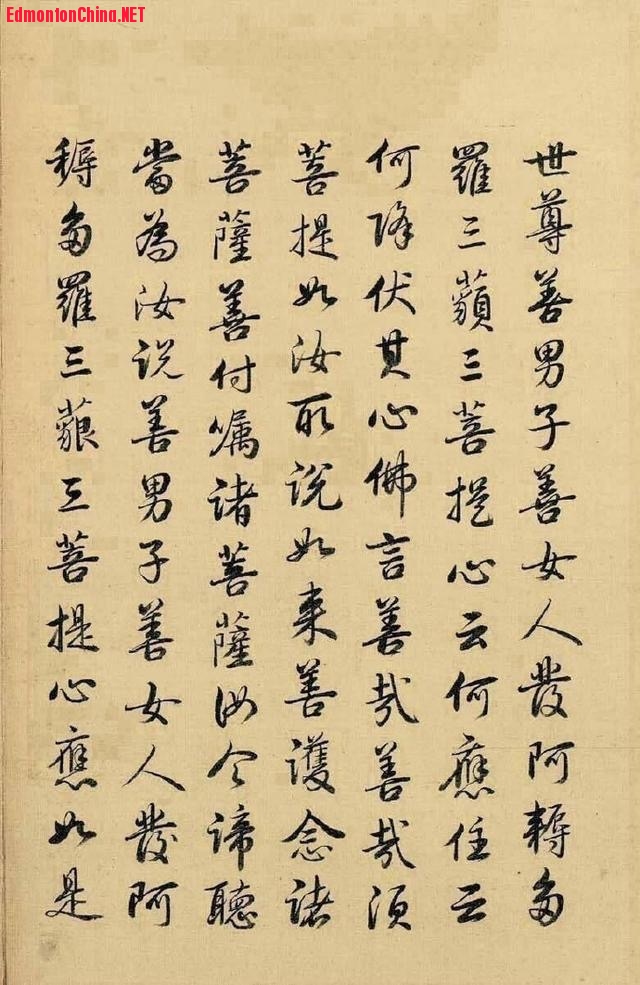 EdmontonChina.NET
世尊善男子善女人發阿耨多
羅三藐三菩提心云何應住云
何降伏其心佛言善哉善哉須
菩提如汝所說如來善護念諸
菩薩善付嘱諸菩薩汝今諦聽
當為汝說善男子善女人發阿
耨多羅三藐三菩提心應如是